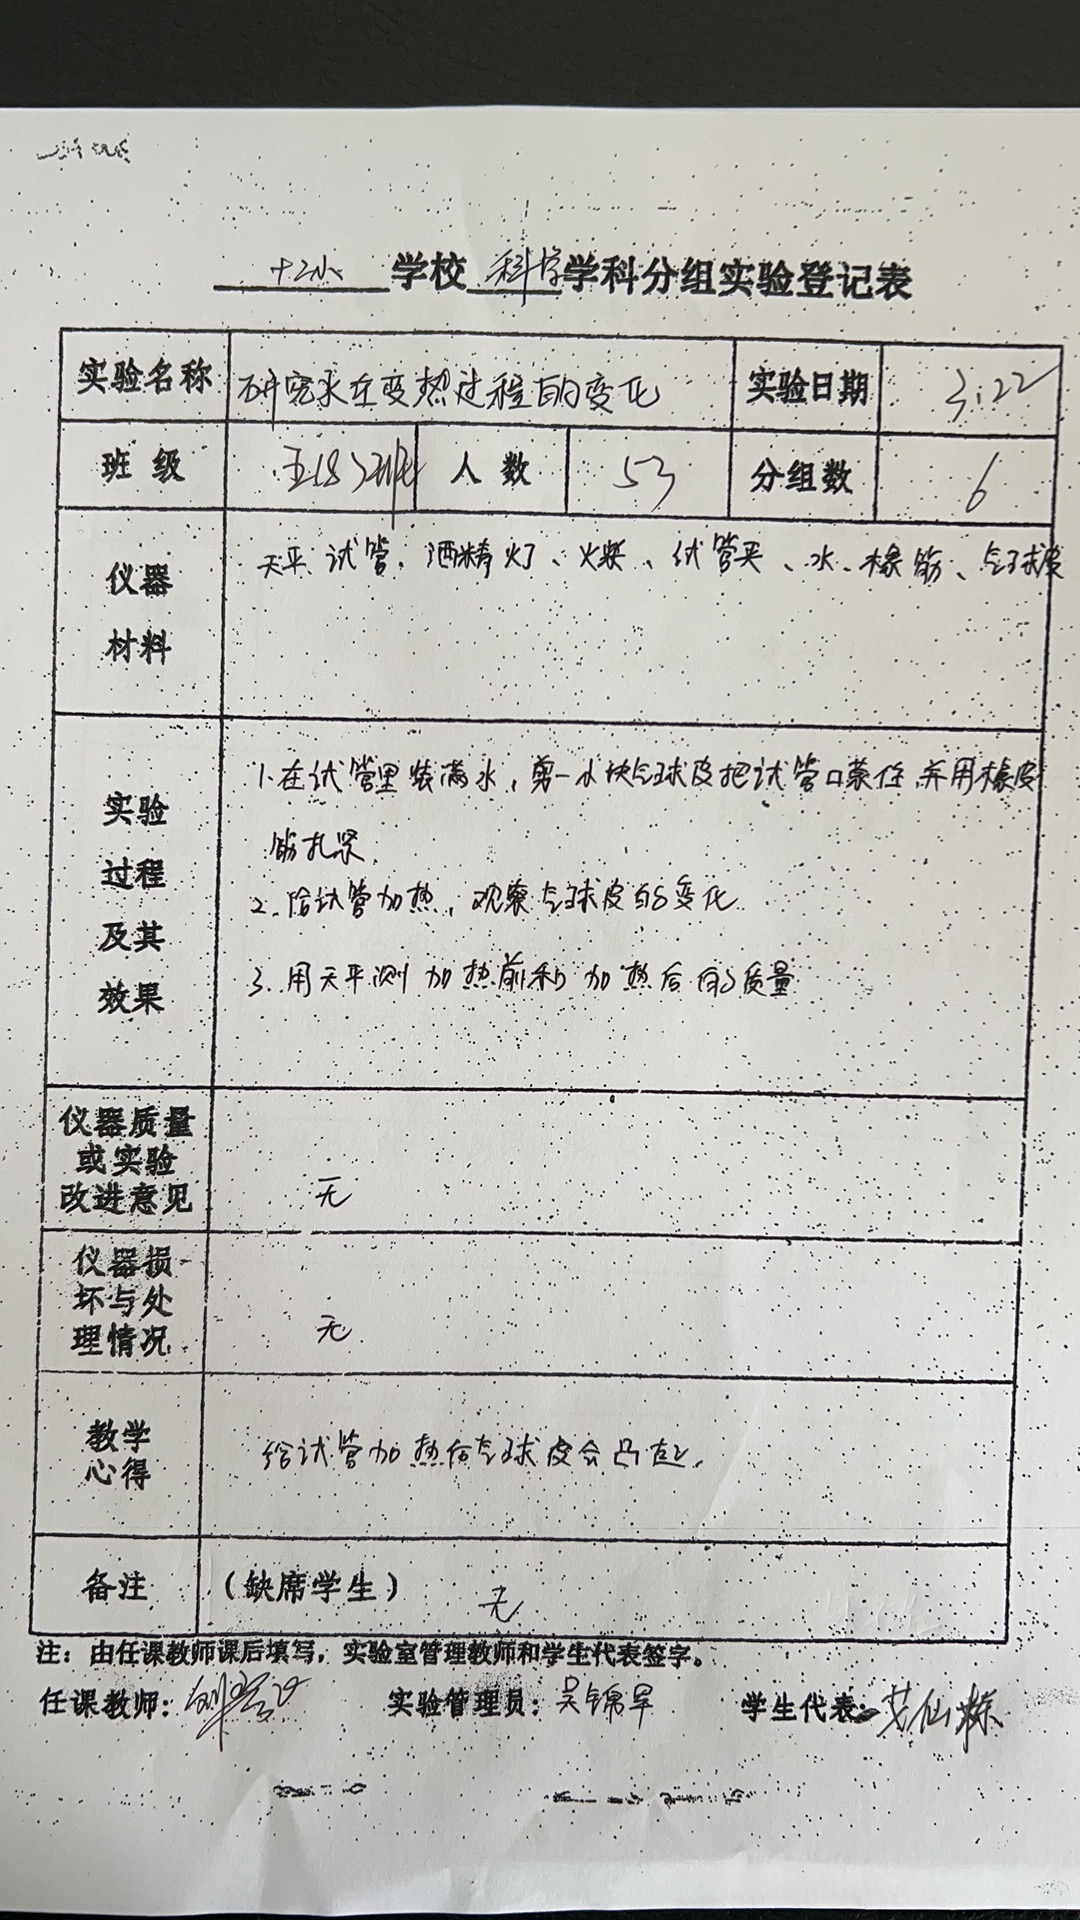 十二小 学校 科学 学科分组实验登记表
实验名称 研究水在变热过程的变化 实验日期 3.22
班级 五(8)班 人数 53 分组数 6
仪器材料 天平、试管、酒精灯、火柴、试管夹、水、橡筋、气球皮
实验过程及其效果
1.在试管里装满水,剪一小块气球皮把试管口蒙住,并用橡皮
筋扎紧.
2.给试管加热,观察气球皮的变化
3.用天平测加热前和加热后的质量
仪器质量或实验改进意见 无
仪器损坏与处理情况 无
教学心得 给试管加热后气球皮会凸起.
备注 (缺席学生) 无
注:由任课教师课后填写,实验室管理教师和学生代表签字。
任课教师: 实验管理员:吴锦军 学生代表:艾仙